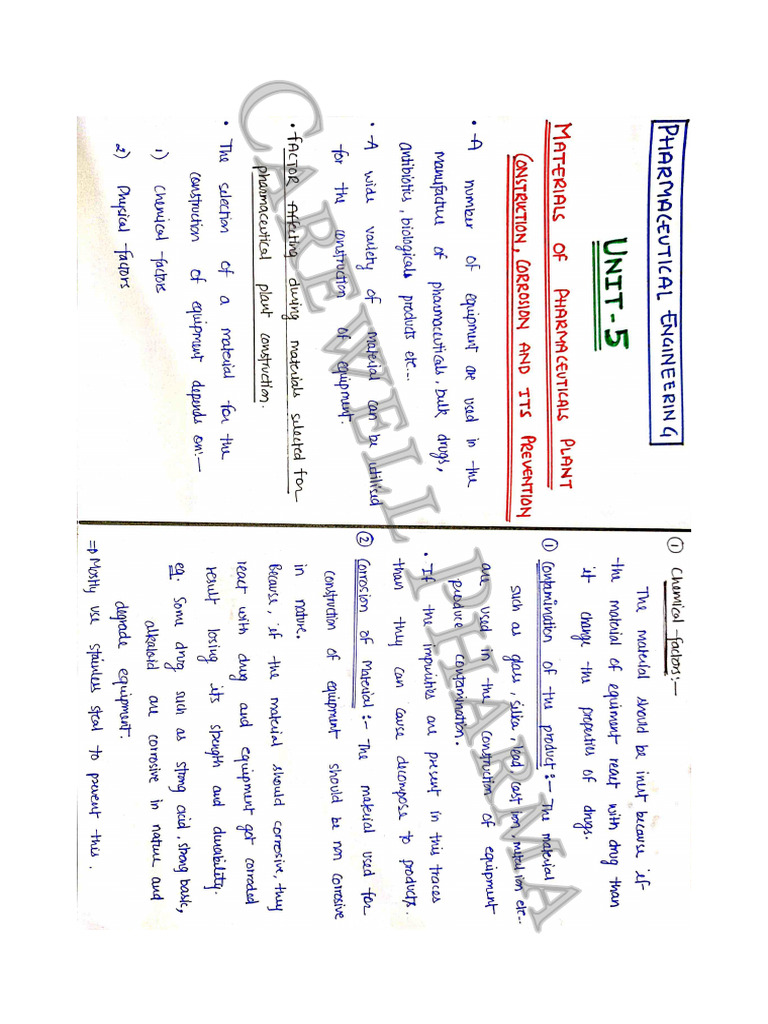 PHARMACEUTICAL ENGINEERING
UNIT-5
MATERIALS OF PHARMACEUTICALS PLANT
CONSTRUCTION, CORROSION AND ITS PREVENTION
• A number of equipment are used in the
manufacture of pharmaceuticals, bulk drugs,
antibiotics, biologicals products etc...
• A wide variety of material can be utilised
for the construction of equipment.
• FACTOR Affecting during materials selected for
pharmaceutical plant construction.
• The selection of a material for the
construction of equipment depends on:-
1) Chemical factors
2) Physical factors
① Chemical factors:-
The material should be inert because if
the material of equiment react with drug than
it change the properties of drugs.
① Contamination of the product:- The material
such as glass, silica, lead, cast iron, metal ion etc...
are used in the construction of equipment
produce contamination.
• If the impurities are present in this traces
than they can cause decompose to products.
② Corrosion of Material:- The material used for
construction of equipment should be non corrosive
in nature.
Because, if the material should corrosive, they
react with drug and equipment get corroded
result losing its strength and durability.
eg. Some drug such as stong acid, strong basic,
alkaloid are corrosive in nature and
degrade equipment.
⇒ Mostly use stainless steal to prevent this.
CAREWELL PHARMA